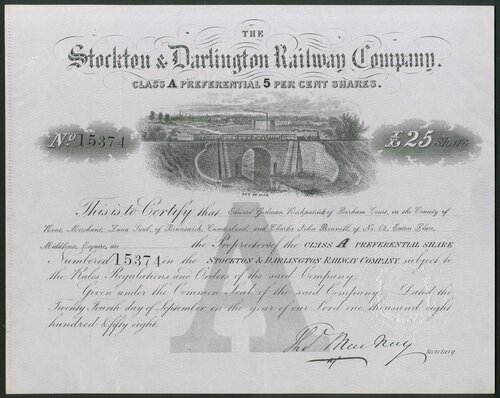 THE
Stockton & Darlington Railway Company.
CLASS A PREFERENTIAL 5 PER CENT SHARES.
No 15374
£25 Share
ACT OF 1858.
This is to Certify that Edward Godman Kirkpatrick of Boxham Court, in the County of
Kent, Merchant, Isaac Saul, of Brunswick, Cumberland, and Charles John Bunnell, of No. 62, Eaton Place,
Middlesex, Esquire, are the Proprietors of the CLASS A PREFERENTIAL SHARE
Numbered 15374 in the STOCKTON & DARLINGTON RAILWAY COMPANY, subject to
the Rules Regulations and Orders of the said Company.
Given under the Common Seal of the said Company. Dated the
Twenty Fourth day of September in the year of our Lord one thousand eight
hundred & fifty eight.
A
Thos. Mac Nay
Secretary